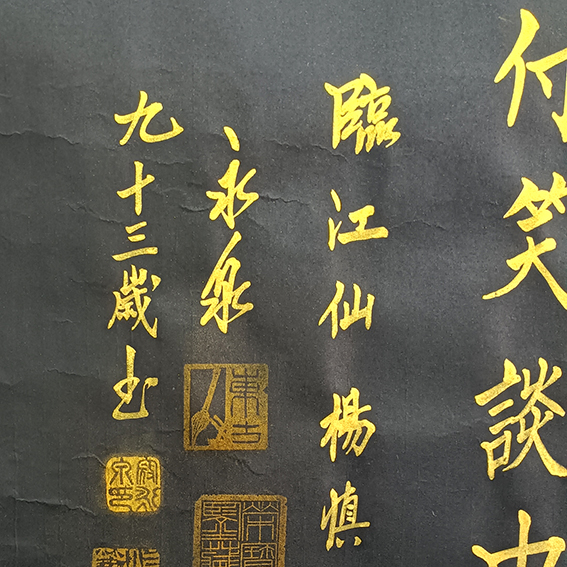 付笑談中
臨江仙 楊慎
永泉
九十三歲書